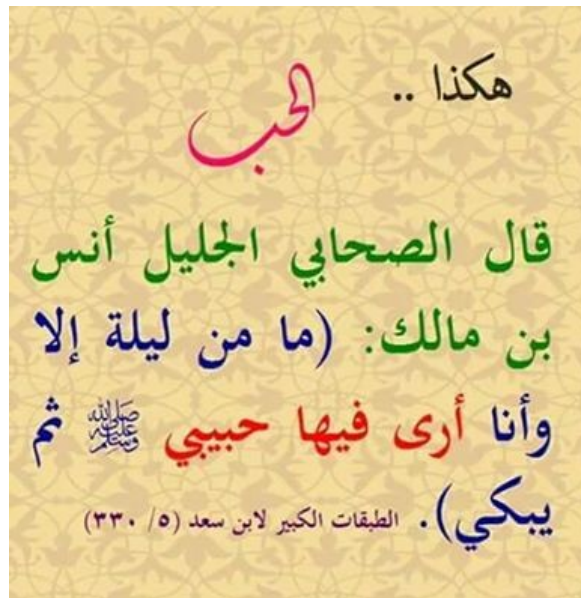 هكذا ..
الحب
قال الصحابي الجليل أنس
بن مالك: (ما من ليلة إلا
وأنا أرى فيها حبيبي ﷺ ثم
يبكي). الطبقات الكبير لابن سعد (٥/ ٣٣٠)